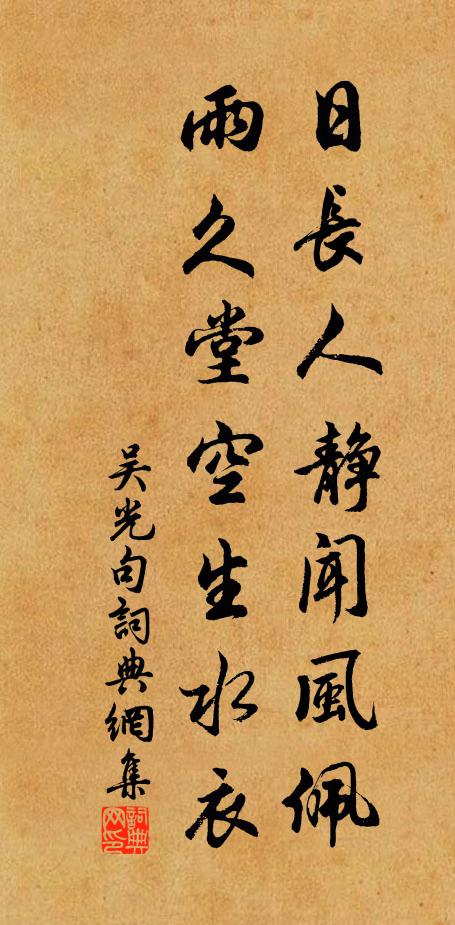 日長人靜聞風佩
雨久堂空生水衣
吴光句詞典網集
詞典网印